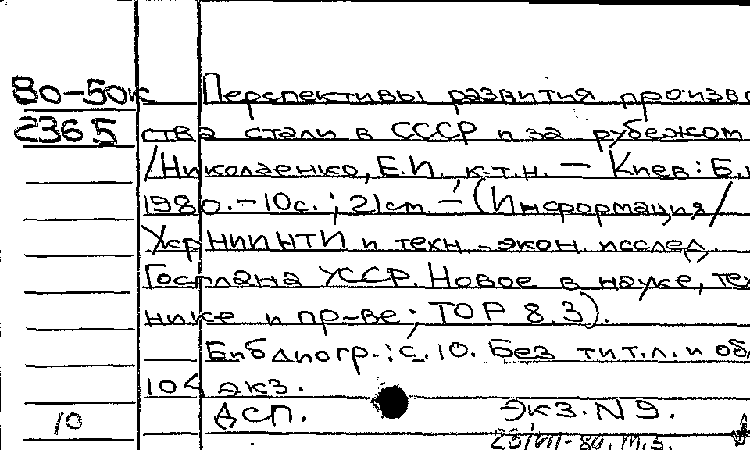 80-50к Перспективы развития произв
2365 ства стали в СССР и за рубежом
/Николаенко, Е.И. к.т.н. — Киев: Б.и
1980.-10с.; 21см — (Информация/
УкрНИИНТИ и техн.-экон. исслед.
Госплана УССР. Новое в науке, тех
нике и пр-ве; ТОР 8.3).
Библиогр.: с. 10. Без тит.л. и об
104 экз.
10 ДСП. Экз. N 9.